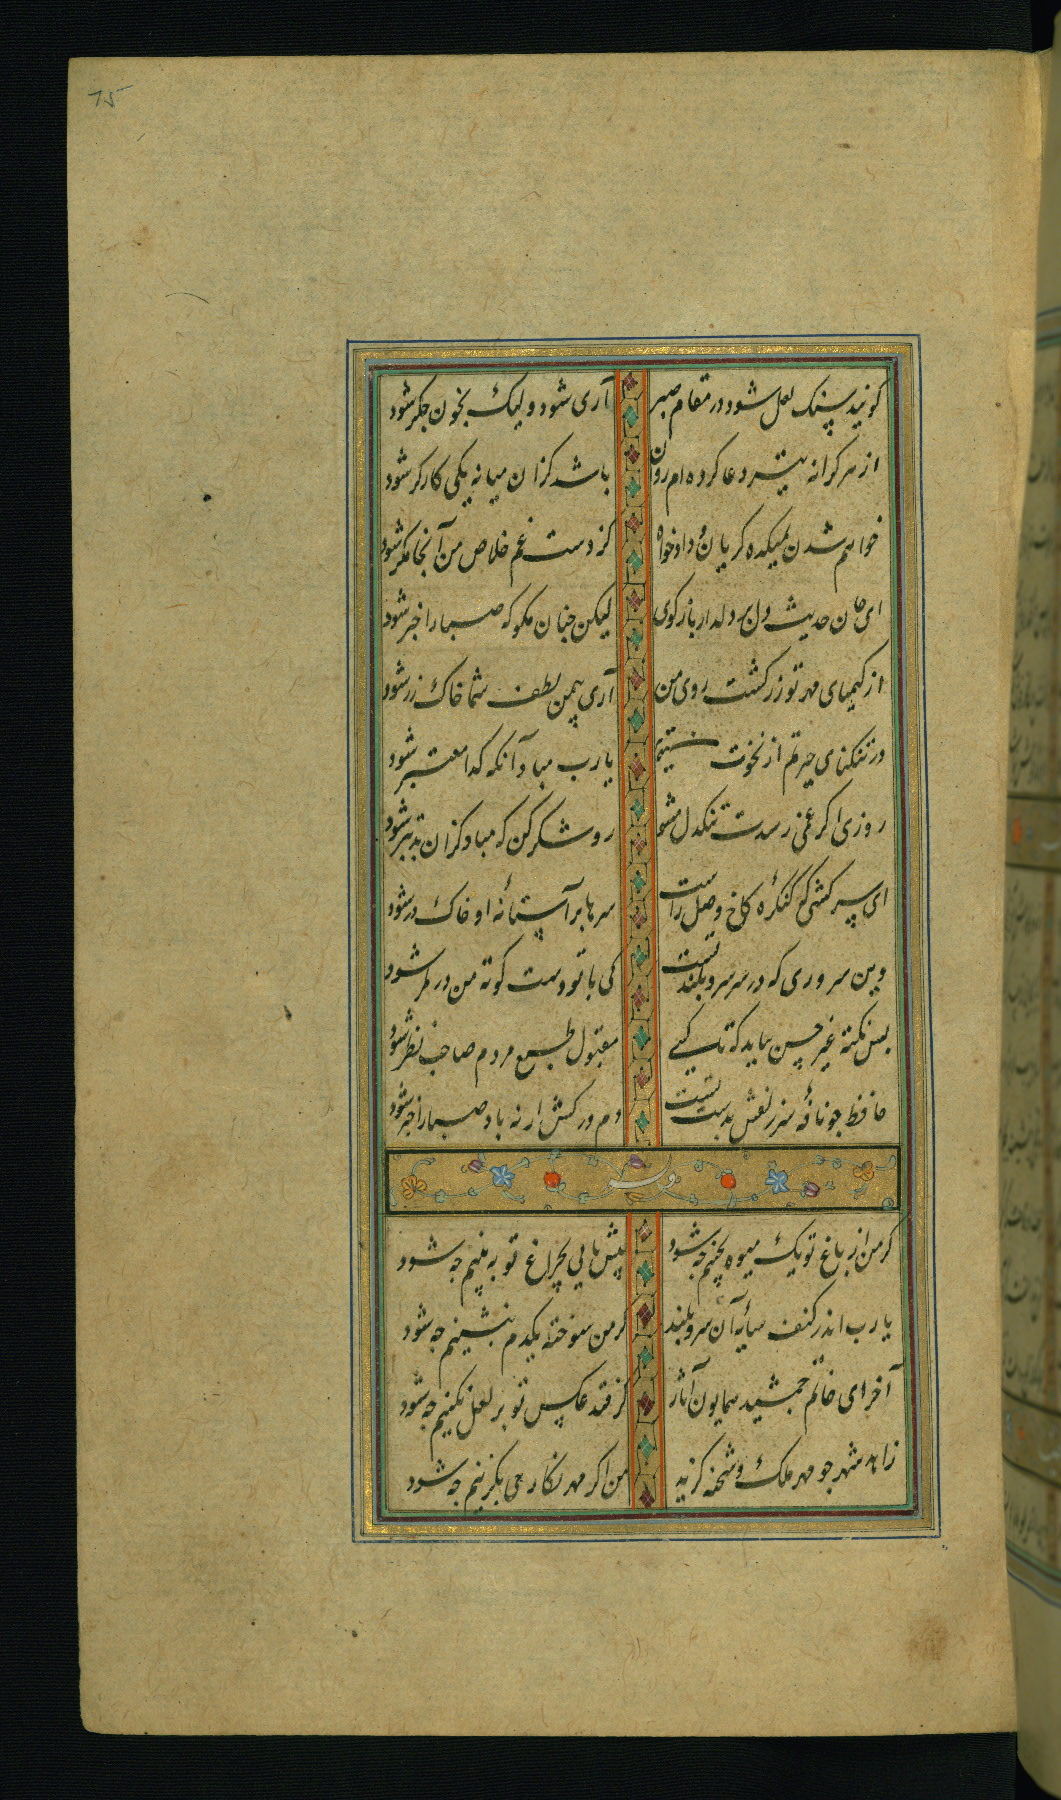 75
کویند سنک لعل شود در مقام صبر آری شود ولیک بخون جکر شود
از هر کرانه تیر دعا کرده ام روان باشد کزان میانه یکی کارکر شود
خواهم شدن بمیکده کریان و دادخواه کز دست غم خلاص من آنجا مکر شود
ای جان حدیث دل بر دلدار بازکوی لیکن چنان مکو که صبا را خبر شود
از کیمیای مهر تو زر کشت روی من آری بیمن لطف شما خاک زر شود
در تنکنای حیرتم از نخوت رقیب یا رب مباد آنکه کدا معتبر شود
روزی اکر غمی رسدت تنکدل مشو رو شکر کن که مباد کزان بد بتر شود
ای سرکشی که کنکرهٔ کاخ وصل راست سرها بر آستانهٔ او خاک در شود
وین سروری که در سر سرو بلند تست کی با تو دست کوته من در کمر شود
بس نکتهٔ غیر حسن بباید که تا کسی مقبول طبع مردم صاحب نظر شود
حافظ چو نافهٔ سر زلفش بدست تست دم درکش ار نه باد صبا را خبر شود
وله
کر من از باغ تو یک میوه بچینم چه شود پیش پایی بچراغ تو ببینم چه شود
یا رب اندر کنف سایهٔ آن سرو بلند کر من سوخته یکدم بنشینم چه شود
آخر ای خاتم جمشید همایون آثار کر فتد عکس تو بر لعل نکینم چه شود
زاهد شهر چو مهر ملک و شحنه کزید من اکر مهر نکاری بکزینم چه شود